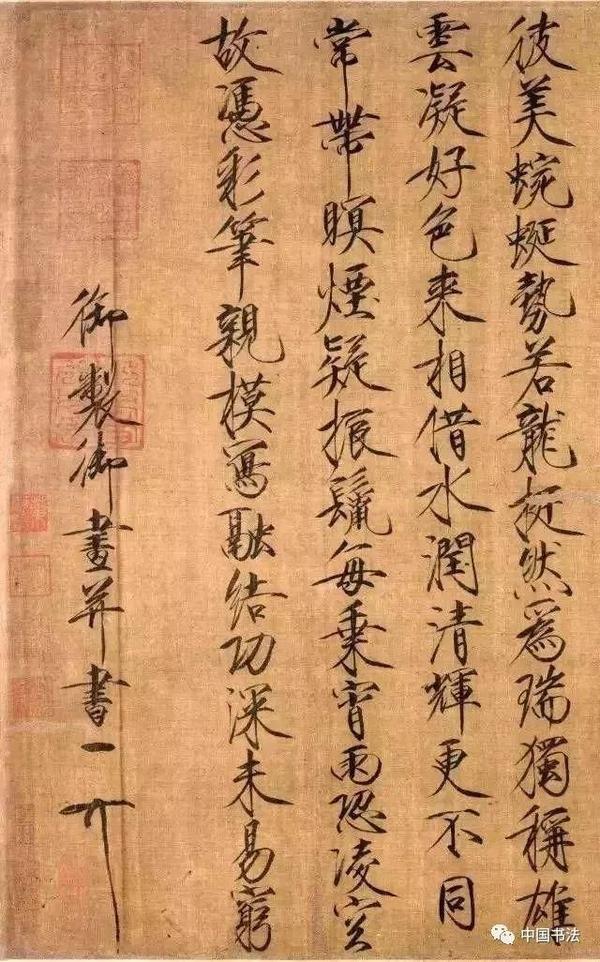 彼美蜿蜒勢若龍挺然爲瑞獨稱雄
雲凝好色来相借水潤清輝更不同
常帶暝煙疑振鬣每乗宵雨恐凌空
故憑彩筆親模寫融結功深未易窮
御製御畫并書
中国书法